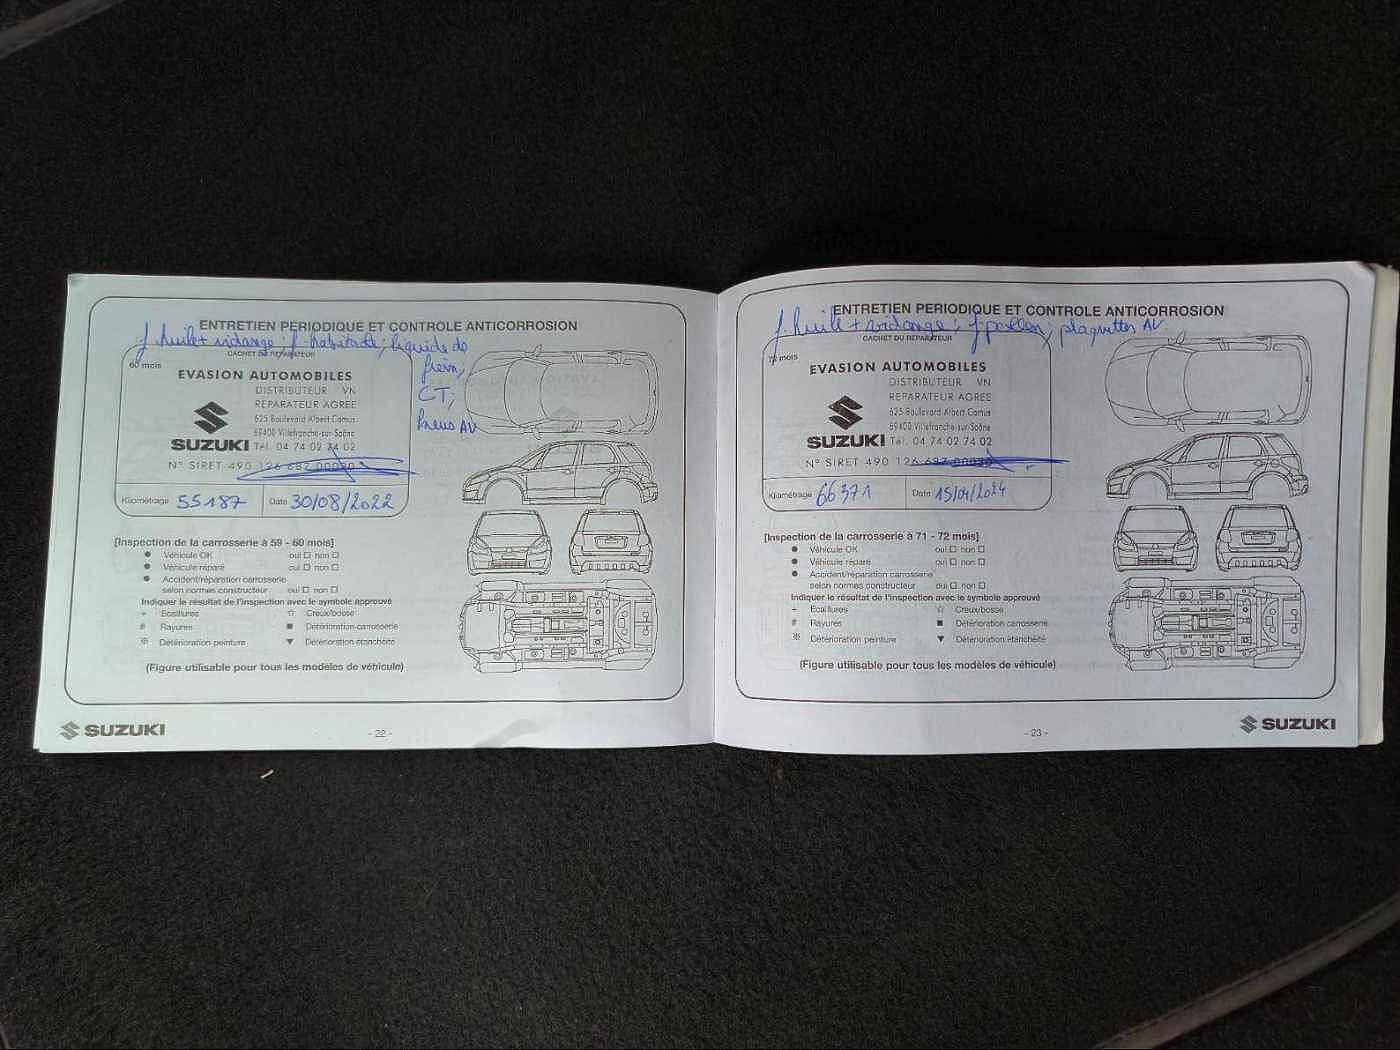 ENTRETIEN PERIODIQUE ET CONTROLE ANTICORROSION
f. huile + vidange; f. habitacle; liquide de
frein;
CT;
Pneus AV
CACHET DU REPARATEUR
60 mois
EVASION AUTOMOBILES
DISTRIBUTEUR VN
REPARATEUR AGREE
625 Boulevard Albert Camus
69400 Villefranche-sur-Saône
SUZUKI Tél. 04 74 02 74 02
N° SIRET 490 126 687 00020
Kilométrage 55187 Date 30/08/2022
[Inspection de la carrosserie à 59 - 60 mois]
● Véhicule OK oui □ non □
● Véhicule réparé oui □ non □
● Accident/réparation carrosserie
selon normes constructeur oui □ non □
Indiquer le résultat de l'inspection avec le symbole approuvé
÷ Ecaillures ☆ Creux/bosse
# Rayures ■ Détérioration carrosserie
※ Détérioration peinture ▼ Détérioration étanchéité
(Figure utilisable pour tous les modèles de véhicule)
SUZUKI
- 22 -
ENTRETIEN PERIODIQUE ET CONTROLE ANTICORROSION
f. huile + vidange; f. pollen; plaquettes AV
CACHET DU REPARATEUR
72 mois
EVASION AUTOMOBILES
DISTRIBUTEUR VN
REPARATEUR AGREE
625 Boulevard Albert Camus
69400 Villefranche-sur-Saône
SUZUKI Tél. 04 74 02 74 02
N° SIRET 490 126 687 00020
Kilométrage 66371 Date 15/04/2024
[Inspection de la carrosserie à 71 - 72 mois]
● Véhicule OK oui □ non □
● Véhicule réparé oui □ non □
● Accident/réparation carrosserie
selon normes constructeur oui □ non □
Indiquer le résultat de l'inspection avec le symbole approuvé
÷ Ecaillures ☆ Creux/bosse
# Rayures ■ Détérioration carrosserie
※ Détérioration peinture ▼ Détérioration étanchéité
(Figure utilisable pour tous les modèles de véhicule)
- 23 -
SUZUKI